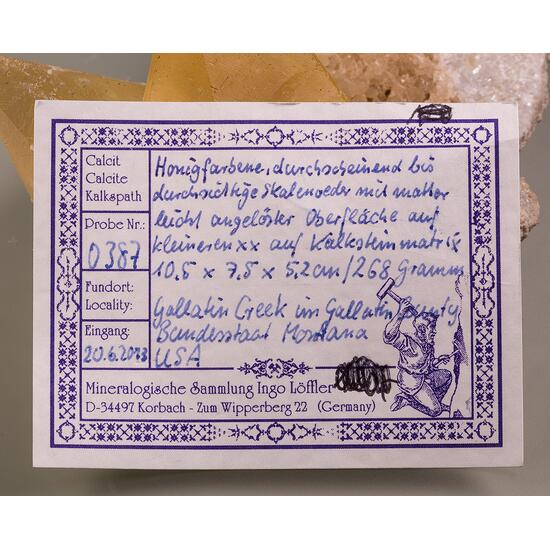 Calcit
Calcite
Kalkspath
Honigfarbene, durchscheinend bis
durchsichtige Skalenoeder mit matter
leicht angelöster Oberfläche auf
kleineren xx auf Kalksteinmatrix
10.5 x 7.5 x 5.2 cm / 268 Gramm
Probe Nr.:
0387
Fundort:
Locality:
Gallatin Creek im Gallatin County
Bundesstaat Montana
USA
Eingang:
20.6.2013
Mineralogische Sammlung Ingo Löffler
D-34497 Korbach - Zum Wipperberg 22 (Germany)